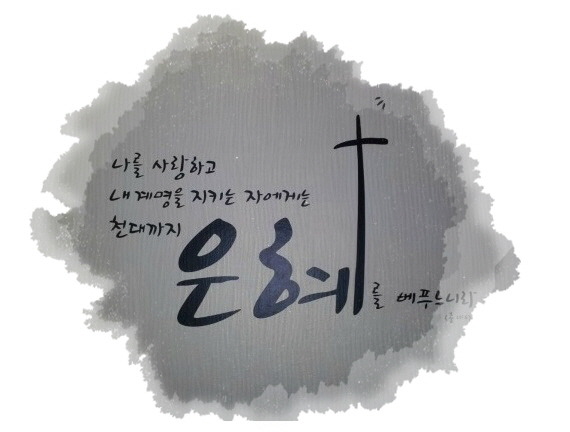 나를 사랑하고
내 계명을 지키는 자에게는
천대까지
은혜를 베푸느니라